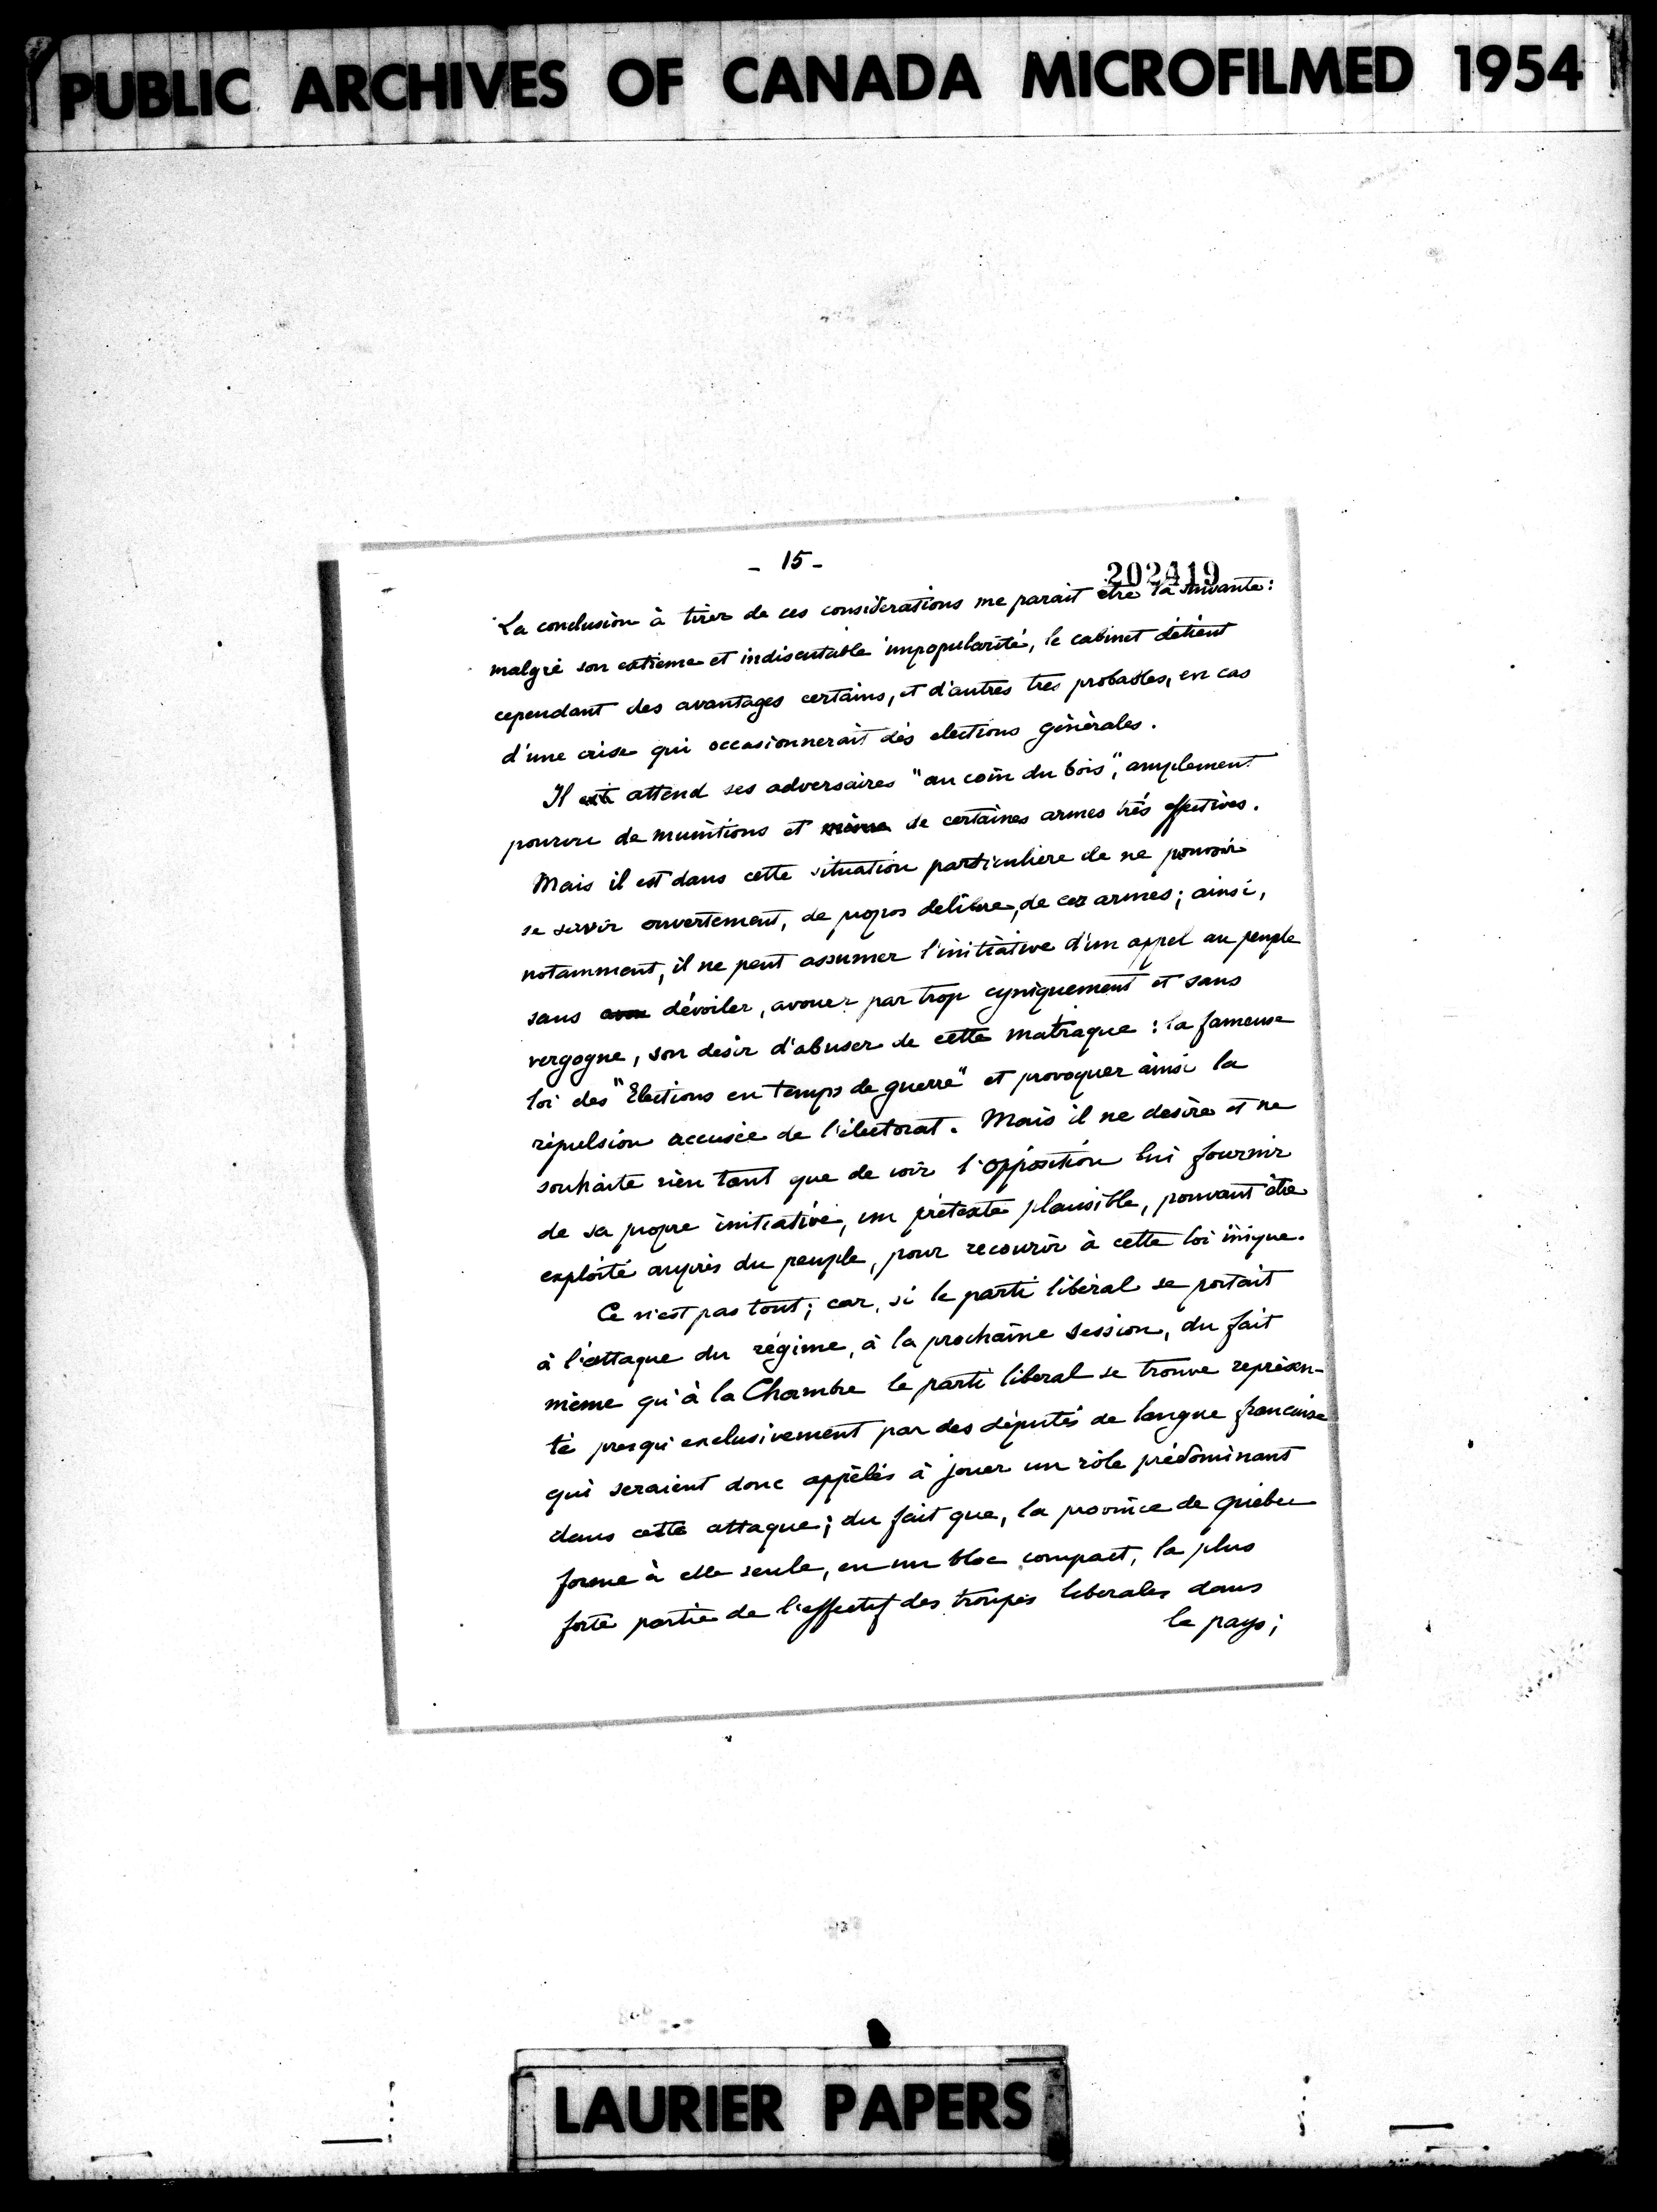 PUBLIC ARCHIVES OF CANADA MICROFILMED 1954
- 15 -
202419
La conclusion à tirer de ces considérations me parait être la suivante:
malgré son extreme et indiscutable impopularité, le cabinet détient
cependant des avantages certains, et d'autres tres probables, en cas
d'une crise qui occasionnerait des elections générales.
Il attend ses adversaires "au coin du bois", amplement
pourvu de munitions et même de certaines armes très effectives.
Mais il est dans cette situation particuliere de ne pouvoir
se servir ouvertement, de propos delibere, de ces armes; ainsi,
notamment, il ne peut assumer l'initiative d'un appel au peuple
sans avou dévoiler, avouer par trop cyniquement et sans
vergogne, son desir d'abuser de cette matraque: la fameuse
loi des "Elections en temps de guerre" et provoquer ainsi la
répulsion accusée de l'électorat. Mais il ne desire et ne
souhaite rien tant que de voir l'opposition lui fournir
de sa propre initiative, un prétexte plausible, pouvant être
exploité auprès du peuple, pour recourir à cette loi inique.
Ce n'est pas tout; car, si le parti libéral se portait
à l'attaque du régime, à la prochaine session, du fait
même qu'à la Chambre le parti liberal se trouve représen-
té presqu'exclusivement par des députés de langue francaise
qui seraient donc appelés à jouer un rôle prédominant
dans cette attaque; du fait que, la province de Québec
forme à elle seule, en un bloc compact, la plus
forte partie de l'effectif des troupes liberales dans
le pays;
LAURIER PAPERS